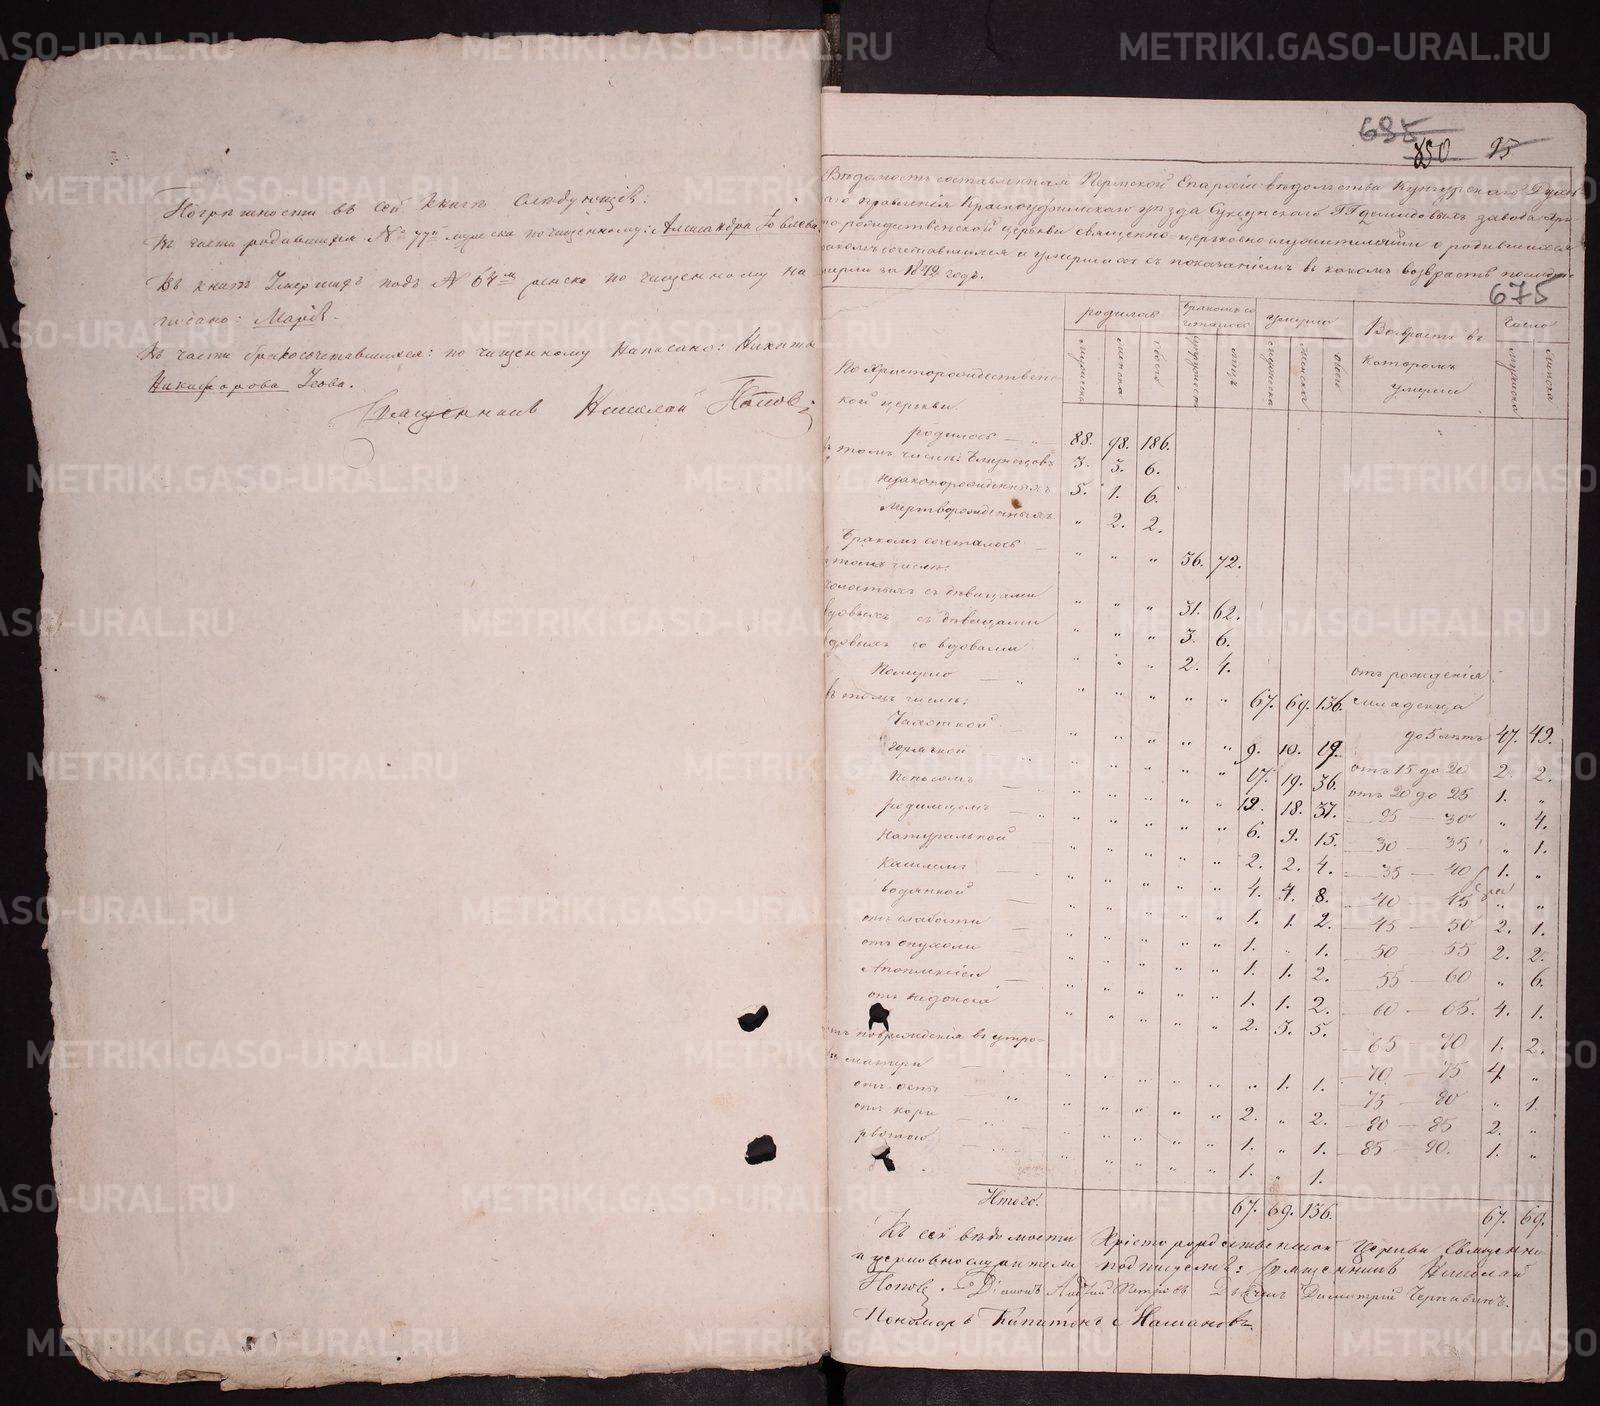 Погрѣшности въ сей книгѣ слѣдующія:
Въ части родившихся № 77й мужска по чищенному: Александра
Въ книгѣ Умершихъ подъ № 64м женска по чищенному на
писано: Марія.
Въ части бракосочетавшихся: по чищенному написано: Никиты
Никифорова
Священникъ Николай Поповъ
685
850 95
Вѣдомость составленная Пермской Епархіи вѣдомства Кунгурскаго Духов
наго правленія Красноуфимскаго уѣзда Суксунскаго ГГ Демидовыхъ завода Хри
сторождественской церкви священно-церковно-служителями о родившихся
бракомъ сочетавшихся и умершихъ съ показаніемъ въ какомъ возрастѣ послѣдніе
умерли за 1842 годъ.
675
родилось
бракомъ сочеталось
умерло
Возрастъ въ которомъ умерли
Число
мужска женска обоего супружествъ лицъ мужска женска обоего мужска женска
По Христорождественс
кой церкви.
родилось — 88. 98. 186.
въ томъ числѣ: близнецовъ 3. 3. 6.
незаконорожденныхъ 5. 1. 6.
мертворожденныхъ " 2. 2.
Бракомъ сочеталось — " " " 36. 72.
въ томъ числѣ:
холостыхъ съ дѣвицами " " " 31. 62.
вдовыхъ съ дѣвицами " " " 3. 6.
вдовыхъ со вдовами " " " 2. 4.
отъ рожденія
Померло — " " " " " 67. 69. 136. младенца
въ томъ числѣ:
до 5 лѣтъ 47. 49.
Чахоткой " " " " " 9. 10. 19.
отъ 15 до 20 2. 2.
Горячкой " " " " " 17. 19. 36.
отъ 20 до 25 1. "
Поносомъ " " " " " 19. 18. 37.
25 — 30 " 4.
родимцомъ " " " " " 6. 9. 15.
30 — 35 " 1.
Натуральной " " " " " 2. 2. 4.
35 — 40 1. "
Кашлемъ " " " " " 4. 4. 8.
40 45 " "
водянкой " " " " " 1. 1. 2.
45 — 50 2. 1.
отъ слабости " " " " " 1. " 1.
50 55 2. 2.
отъ опухоли " " " " " 1. 1. 2.
55 — 60 " 6.
Апоплексіей " " " " " 1. 1. 2.
60 — 65. 4. 1.
отъ недоноса " " " " " 2. 3. 5.
65 — 70 1. 2.
отъ поврежденія въ утро
бѣ матери " " " " " " 1. 1.
70 — 75 4. "
75 — 80 " 1.
отъ оспы " " " " " 2. " 2.
80 — 85 2. "
отъ кори " " " " " 1. " 1.
85 — 90. 1. "
рвотою " " " " " 1. " 1.
Итого. 67. 69. 136. 67. 69.
Къ сей вѣдомости Христорождественской Церкви Священно
и церковнослужители подписуемся: Священникъ Николай
Поповъ. Діаконъ Андрей Петровъ Дьячекъ Димитрій Чернавинъ.
Пономарь Капитонъ